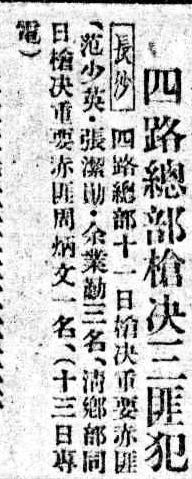 四路總部槍决三匪犯
長沙 四路總部十一日槍决重要赤匪
、范少英·張潔勛·余業勤三名、淸鄕部同
日槍决重要赤匪周炳文一名、（十三日專
電）